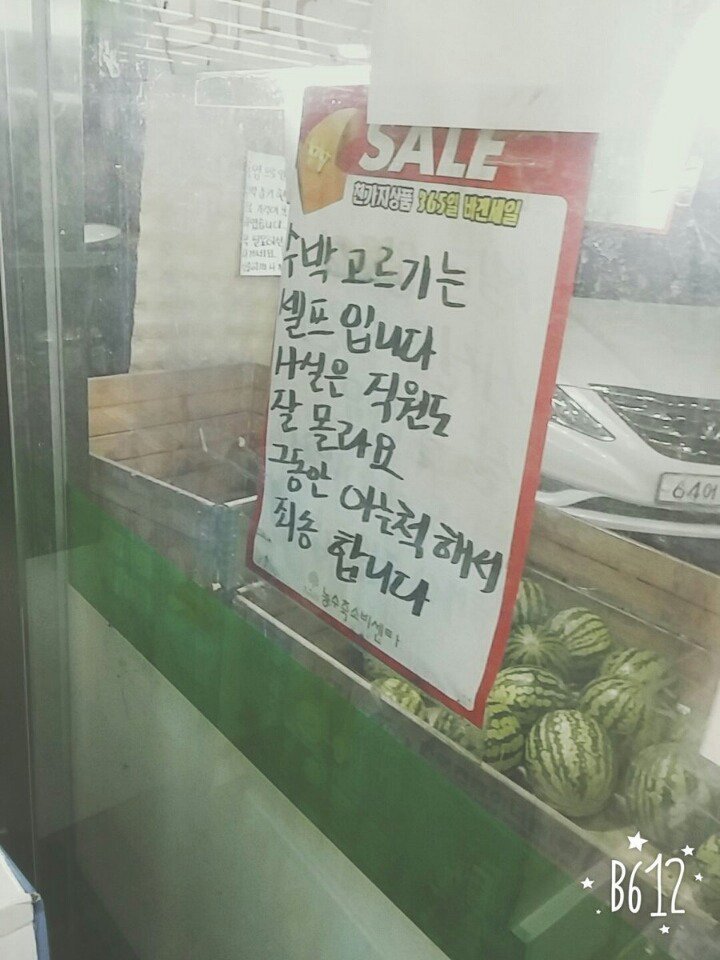 SALE
천가지상품 365일 바겐세일
수박 고르기는
셀프 입니다
사실은 직원도
잘 몰라요
그동안 아는척 해서
죄송 합니다
농수축소비센타
64어
B612